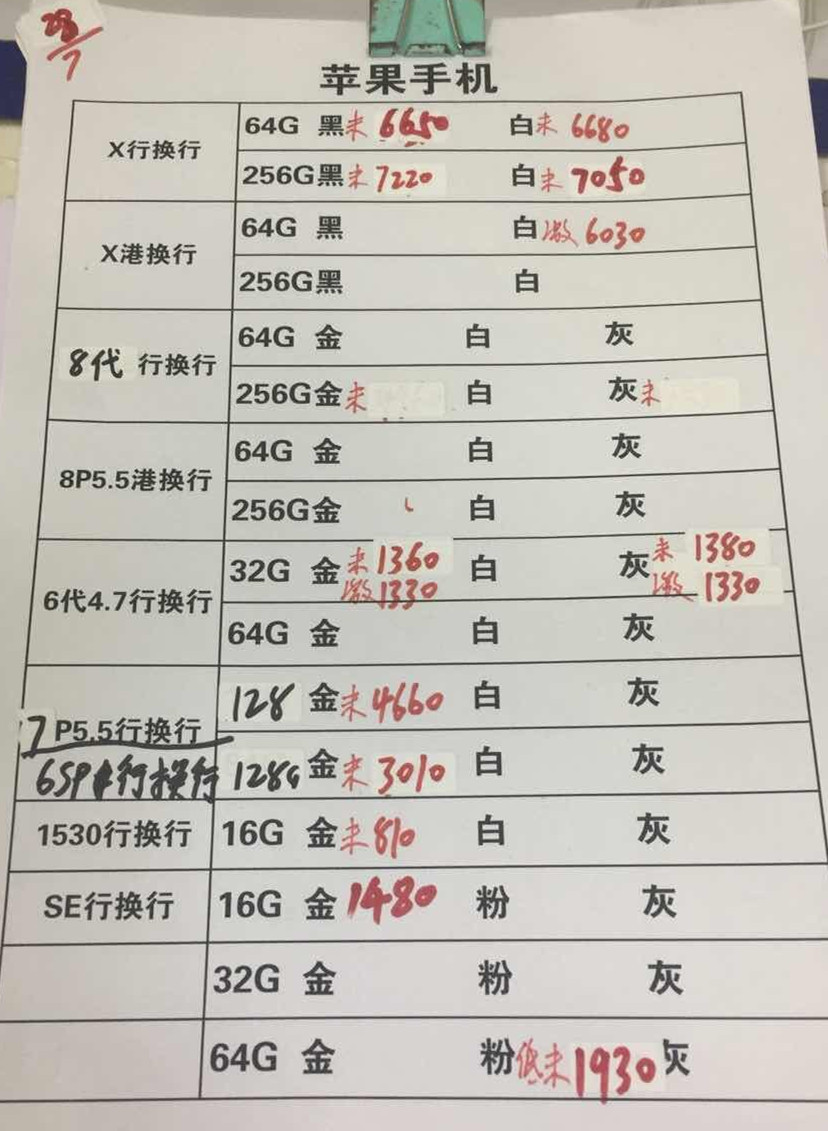 28/7
苹果手机
X行换行 64G 黑未 6650 白未 6680
256G黑未 7220 白未 7050
X港换行 64G 黑 白激 6030
256G黑 白
8代 行换行 64G 金 白 灰
256G金未 白 灰未
8P5.5港换行 64G 金 白 灰
256G金 白 灰
6代4.7行换行 32G 金 未 1360 白 灰 未 1380
激 1330 激 1330
64G 金 白 灰
7 P5.5行换行 128 金未 4660 白 灰
6SP 行换行 128G 金未 3010 白 灰
1530行换行 16G 金未 810 白 灰
SE行换行 16G 金 1480 粉 灰
32G 金 粉 灰
64G 金 粉低未 1930 灰